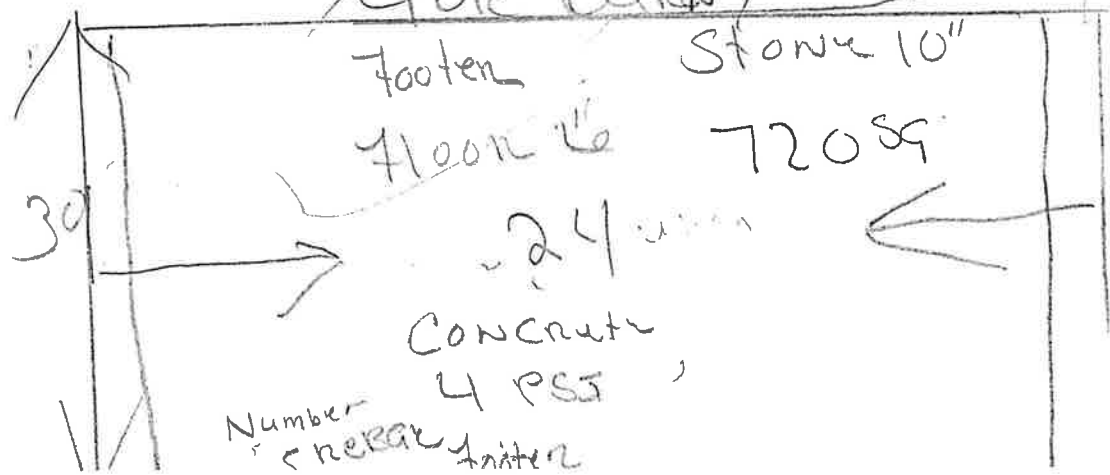 Footer Stone 10"
Floor 6" 720 SQ
30
24
CONCRETE
4 PSI
Number
REBAR Footer